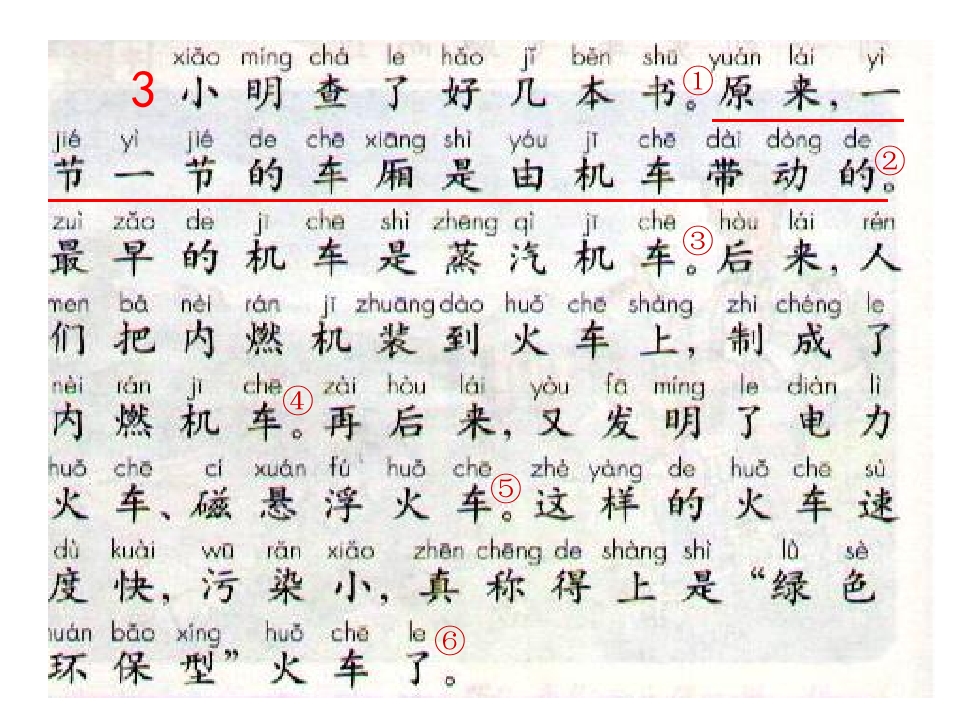 xiǎo míng chá le hǎo jǐ běn shū yuán lái yì
3 小明查了好几本书。①原来,一
jié yì jié de chē xiāng shì yóu jī chē dài dòng de
节一节的车厢是由机车带动的。②
zuì zǎo de jī chē shì zhēng qì jī chē hòu lái rén
最早的机车是蒸汽机车。③后来,人
men bǎ nèi rán jī zhuāng dào huǒ chē shàng zhì chéng le
们把内燃机装到火车上,制成了
nèi rán jī chē zài hòu lái yòu fā míng le diàn lì
内燃机车。④再后来,又发明了电力
huǒ chē cí xuán fú huǒ chē zhè yàng de huǒ chē sù
火车、磁悬浮火车。⑤这样的火车速
dù kuài wū rǎn xiǎo zhēn chēng de shàng shì lǜ sè
度快,污染小,真称得上是“绿色
huán bǎo xíng huǒ chē le
环保型”火车了。⑥